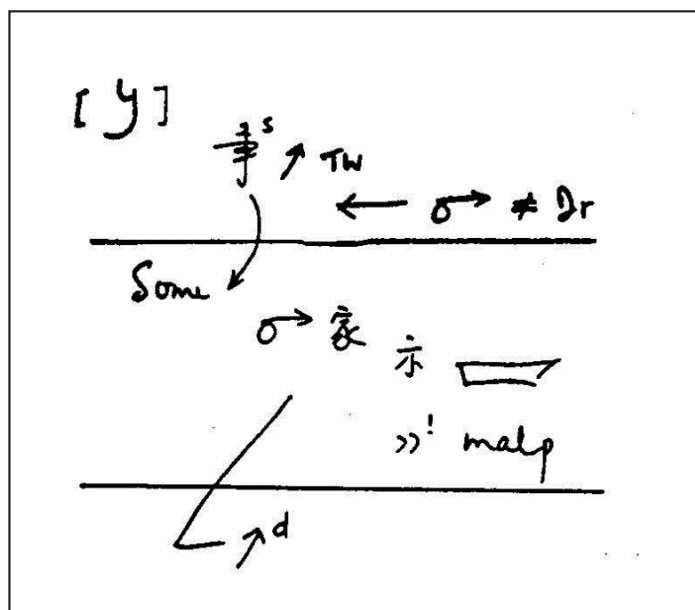 [y]
事s ↗ TW
← σ→ ≠ Dr
Some
σ→ 家 示
»! malp
↗d